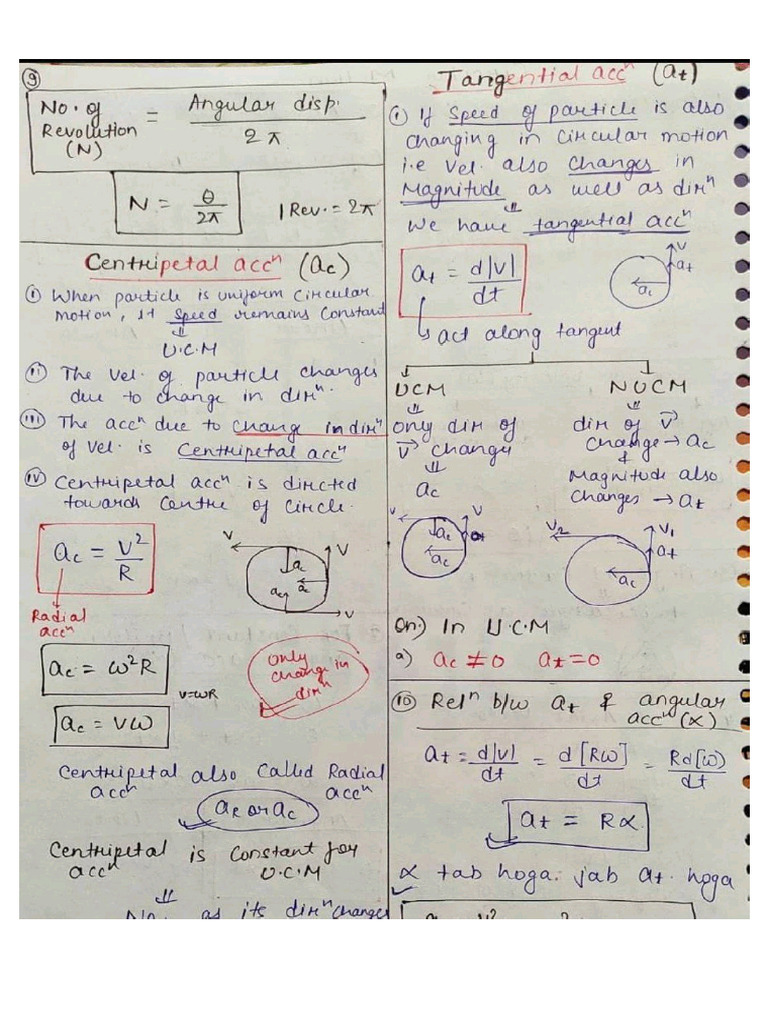 9
No. of Revolution (N) = Angular disp. / 2π
N = θ / 2π
1 Rev. = 2π
Centripetal accⁿ (ac)
(i) When particle is uniform circular
motion, it speed remains constant
⇓
U.C.M
(ii) The vel. of particle changes
due to change in dirⁿ.
(iii) The accⁿ due to change in dirⁿ
of vel. is Centripetal accⁿ
(iv) Centripetal accⁿ is directed
towards Centre of circle.
ac = V²/R
Radial
accⁿ
V
V
ac
ac
ac
V
ac = ω²R
v=ωR
ac = Vω
Only
change in
dirⁿ
Centripetal also called Radial
accⁿ accⁿ
aR or ac
Centripetal is constant for
accⁿ U.C.M
⇓
No as its dirⁿ changes
Tangential accⁿ (at)
(i) If speed of particle is also
changing in circular motion
i.e vel. also changes in
Magnitude as well as dirⁿ
⇓
We have tangential accⁿ
at = d|v|/dt
v
at
ac
↳ act along tangent
UCM
⇓
only dir of
v⃗ changes
⇓
ac
NUCM
⇓
dir of v⃗
change → ac
&
Magnitude also
changes → at
V
V
ac
ac
V2
V1
at
ac
Qn:) In U.C.M
a) ac ≠ 0 at = 0
10 Relⁿ b/w at & angular
accⁿ (α)
at = d|v|/dt = d[Rω]/dt = Rd(ω)/dt
at = Rα
α tab hoga. jab at. hoga